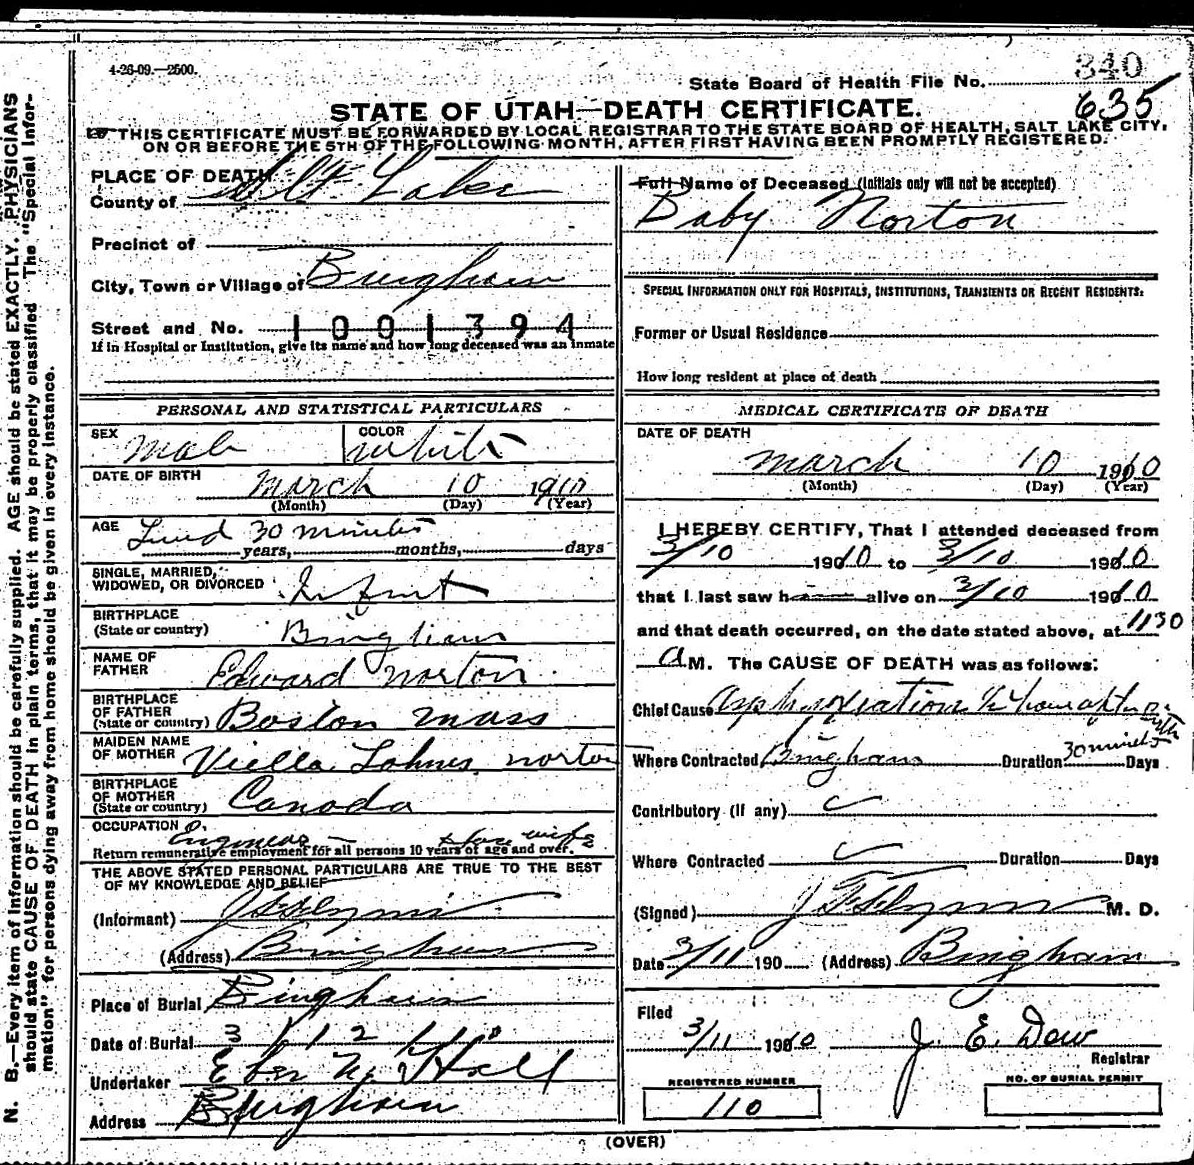 4-26-09.—2500.
State Board of Health File No. 340
635
STATE OF UTAH—DEATH CERTIFICATE.
THIS CERTIFICATE MUST BE FORWARDED BY LOCAL REGISTRAR TO THE STATE BOARD OF HEALTH, SALT LAKE CITY,
ON OR BEFORE THE 5TH OF THE FOLLOWING MONTH, AFTER FIRST HAVING BEEN PROMPTLY REGISTERED.
N. B.—Every item of information should be carefully supplied. AGE should be stated EXACTLY. PHYSICIANS
should state CAUSE OF DEATH in plain terms, that it may be properly classified. The "Special Infor-
mation" for persons dying away from home should be given in every instance.
PLACE OF DEATH
County of Salt Lake
Precinct of
City, Town or Village of Bingham
Street and No. 1001394
If in Hospital or Institution, give its name and how long deceased was an inmate
PERSONAL AND STATISTICAL PARTICULARS
SEX Male COLOR White
DATE OF BIRTH March 10 1910
(Month) (Day) (Year)
AGE Lived 30 minutes
years, months, days
SINGLE, MARRIED,
WIDOWED, OR DIVORCED Infant
BIRTHPLACE
(State or country) Bingham
NAME OF
FATHER Edward Norton
BIRTHPLACE
OF FATHER
(State or country) Boston Mass
MAIDEN NAME
OF MOTHER Viella Norton
BIRTHPLACE
OF MOTHER
(State or country) Canada
OCCUPATION Engineer - House wife
Return remunerative employment for all persons 10 years of age and over.
THE ABOVE STATED PERSONAL PARTICULARS ARE TRUE TO THE BEST
OF MY KNOWLEDGE AND BELIEF
(Informant)
(Address) Bingham
Place of Burial Bingham
Date of Burial 3/12/10
Undertaker Eber Hall
Address Bingham
Full Name of Deceased (Initials only will not be accepted)
Baby Norton
SPECIAL INFORMATION ONLY FOR HOSPITALS, INSTITUTIONS, TRANSIENTS OR RECENT RESIDENTS:
Former or Usual Residence
How long resident at place of death
MEDICAL CERTIFICATE OF DEATH
DATE OF DEATH
March 10 1910
(Month) (Day) (Year)
I HEREBY CERTIFY, That I attended deceased from
3/10 1910 to 3/10 1910
that I last saw h alive on 3/10 1910
and that death occurred, on the date stated above, at 1130
A M. The CAUSE OF DEATH was as follows:
Chief Cause Asphyxiation 1/2 hour after birth
Where Contracted Bingham Duration 30 minutes Days
Contributory (if any)
Where Contracted Duration Days
(Signed) M. D.
Date 3/11 190 (Address) Bingham
Filed
3/11 1910 J. E. Dow
Registrar
REGISTERED NUMBER
110
NO. OF BURIAL PERMIT
(OVER)